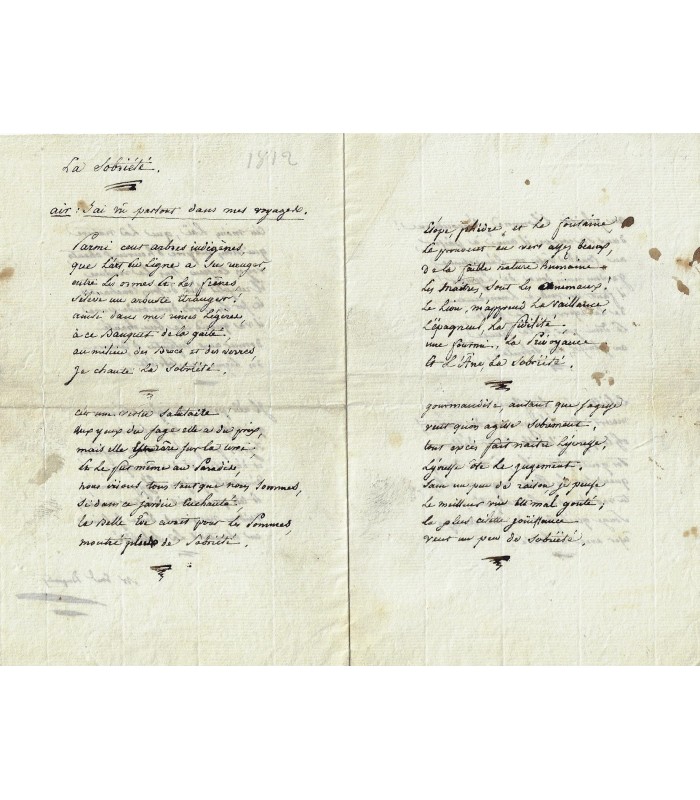 La Sobriété.
1812
air: J'ai vu partout dans mes voyages.
Parmi cent arbres indigènes,
que l'art en ligne a su ranger,
entre les ormes et les frênes
s'élève un arbuste étranger:
ainsi dans mes rimes légères,
à ce Banquet de la gaité,
au milieu des Brocs et des verres
je chante la Sobriété.
c'est une vertu salutaire
aux yeux du sage elle a du prix,
mais elle est rare sur la terre
et le fut même au Paradis,
nous irions tous tant que nous sommes,
si dans ce jardin enchanté
la Belle Eve avait pour les Pommes,
montré plus de Sobriété.
Esope, phèdre, et la fontaine
le prouvent en vers assez beaux,
de la faible nature humaine
les maîtres, sont les animaux:
le Lion, m'apprend la vaillance,
l'épagneul, la fidélité
une fourmi, la Prévoyance
et l'Ane, la Sobriété.
gourmandise, autant que sagesse
veut qu'on agisse Sobrement,
tout excès fait naitre l'ivresse,
l'ivresse ôte le jugement.
sans un peu de raison je pense
le meilleur vin est mal gouté;
la plus courte jouissance
veut un peu de Sobriété.